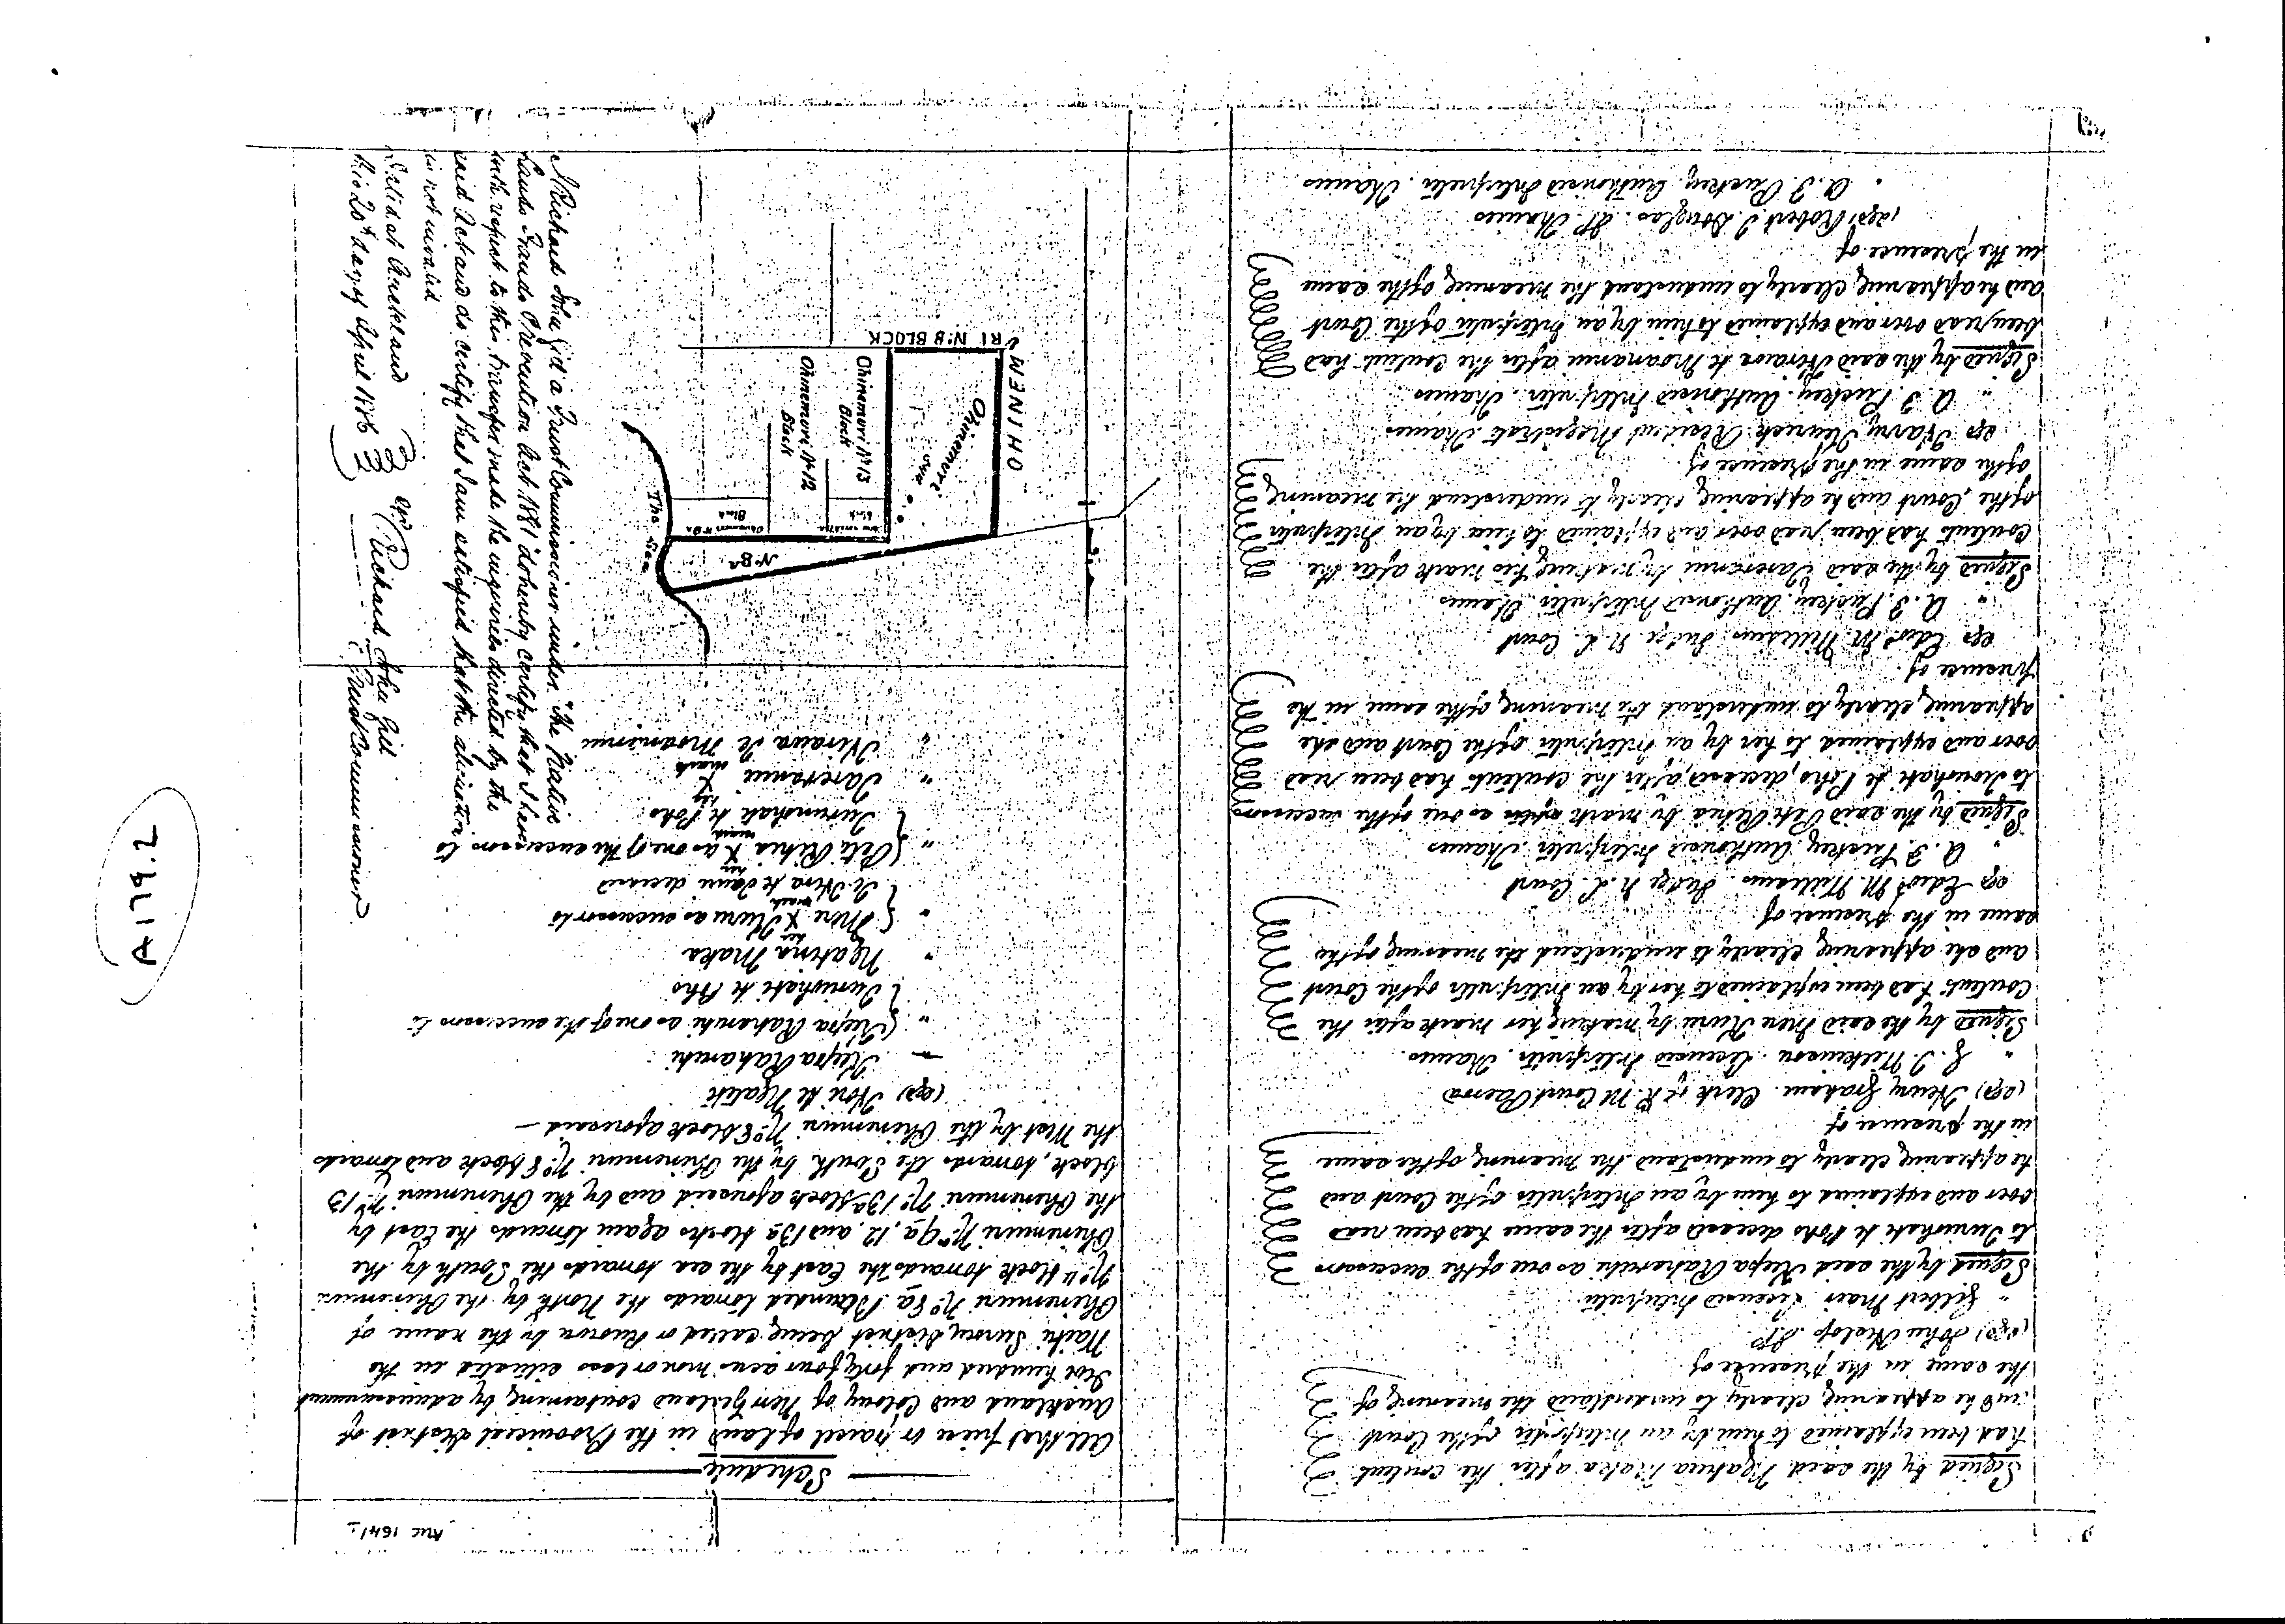 Signed by the said Ngahina Maka after the content
had been explained to him by an Interpreter of the Court
and he appearing clearly to understand the meaning of
the same in the presence of
(sgd) John Kislop. JP.
" Gilbert Mair Licensed Interpreter
Signed by the said Keepa Raharuhi as one of the successors
to Turuhake te Poho deceased after the same had been read
over and explained to him by an Interpreter of the Court and
he appearing clearly to understand the meaning of the same
in the presence of
(sgd) Henry Graham. Clerk of R. M Court Paeroa
" J. Wilkinson. Licensed Interpreter. Thames.
Signed by the said Mere Kuru by making her mark after the
Content had been explained to her by an Interpreter of the Court
and she appearing clearly to understand the meaning of the
same in the presence of
sgd Edwd M. Williams. Judge N. L. Court
" A. J. Puckey. Authorised Interpreter. Thames
Signed by the said Peti Rihia by mark as one of the successors
to Turuhake te Poho, deceased, after the contents had been read
over and explained to her by an Interpreter of the Court and she
appearing clearly to understand the meaning of the same in the
presence of
sgd Edwd M. Williams. Judge N. L. Court
" A. J. Puckey. Authorised Interpreter. Thames
Signed by the said Taretanui by making his mark after the
Contents had been read over and explained to him by an Interpreter
of the Court and he appearing clearly to understand the meaning
of the same in the presence of
sgd Harry Kenrick Resident Magistrate. Thames
" A. J. Puckey. Authorised Interpreter. Thames
Signed by the said Hiraiwa te Moananui after the Content had
been read over and explained to him by an Interpreter of the Court
and he appearing clearly to understand the meaning of the same
in the presence of
(sgd) Robert J Douglas. JP. Thames
" A. J. Puckey. Authorised Interpreter. Thames
Schedule
All that piece or parcel of land in the Provincial District of
Auckland and Colony of New Zealand containing by admeasurement
hundred and forty four acres more or less situated in the
Waihi Survey District being called or known by the name of
Ohinemuri No. 8a Bounded towards the North by the Ohinemuri
No. 11 block towards the East by the sea towards the South by the
Ohinemuri No. 9a, 12, and 13a blocks again towards the East by
the Ohinemuri No. 13a block aforesaid and by the Ohinemuri No. 13
block, towards the South by the Ohinemuri No. 8 block and towards
the West by the Ohinemuri No. 8 block aforesaid
(sgd) Hori te Ngatete
Keepa Raharuhi
" Keepa Raharuhi as one of the successors to
Turuhake te Poho
" Ngahina Maka
" Mere her X mark Kuru as successor to
deceased
" Peti Rihia her X mark as one of the successors to
Turuhake te Poho
" Taretanui his X mark
" Hiraiwa te Moananui
The Sea
No. 8A
Block
Ohinemuri No. 12
Block
Ohinemuri No. 13
Block
OHINEMURI No. 8 BLOCK
I Richard John Gill a Trust Commissioner under "The Native
Lands Frauds Prevention Act 1881" do hereby certify that I have
with respect to this transfer made the inquiries directed by the
said Act and do certify that I am satisfied that the alienation
is not invalid
Dated at Auckland
this 20th day of April 1886
sgd Richard John Gill
Trust Commissioner
A 179.2